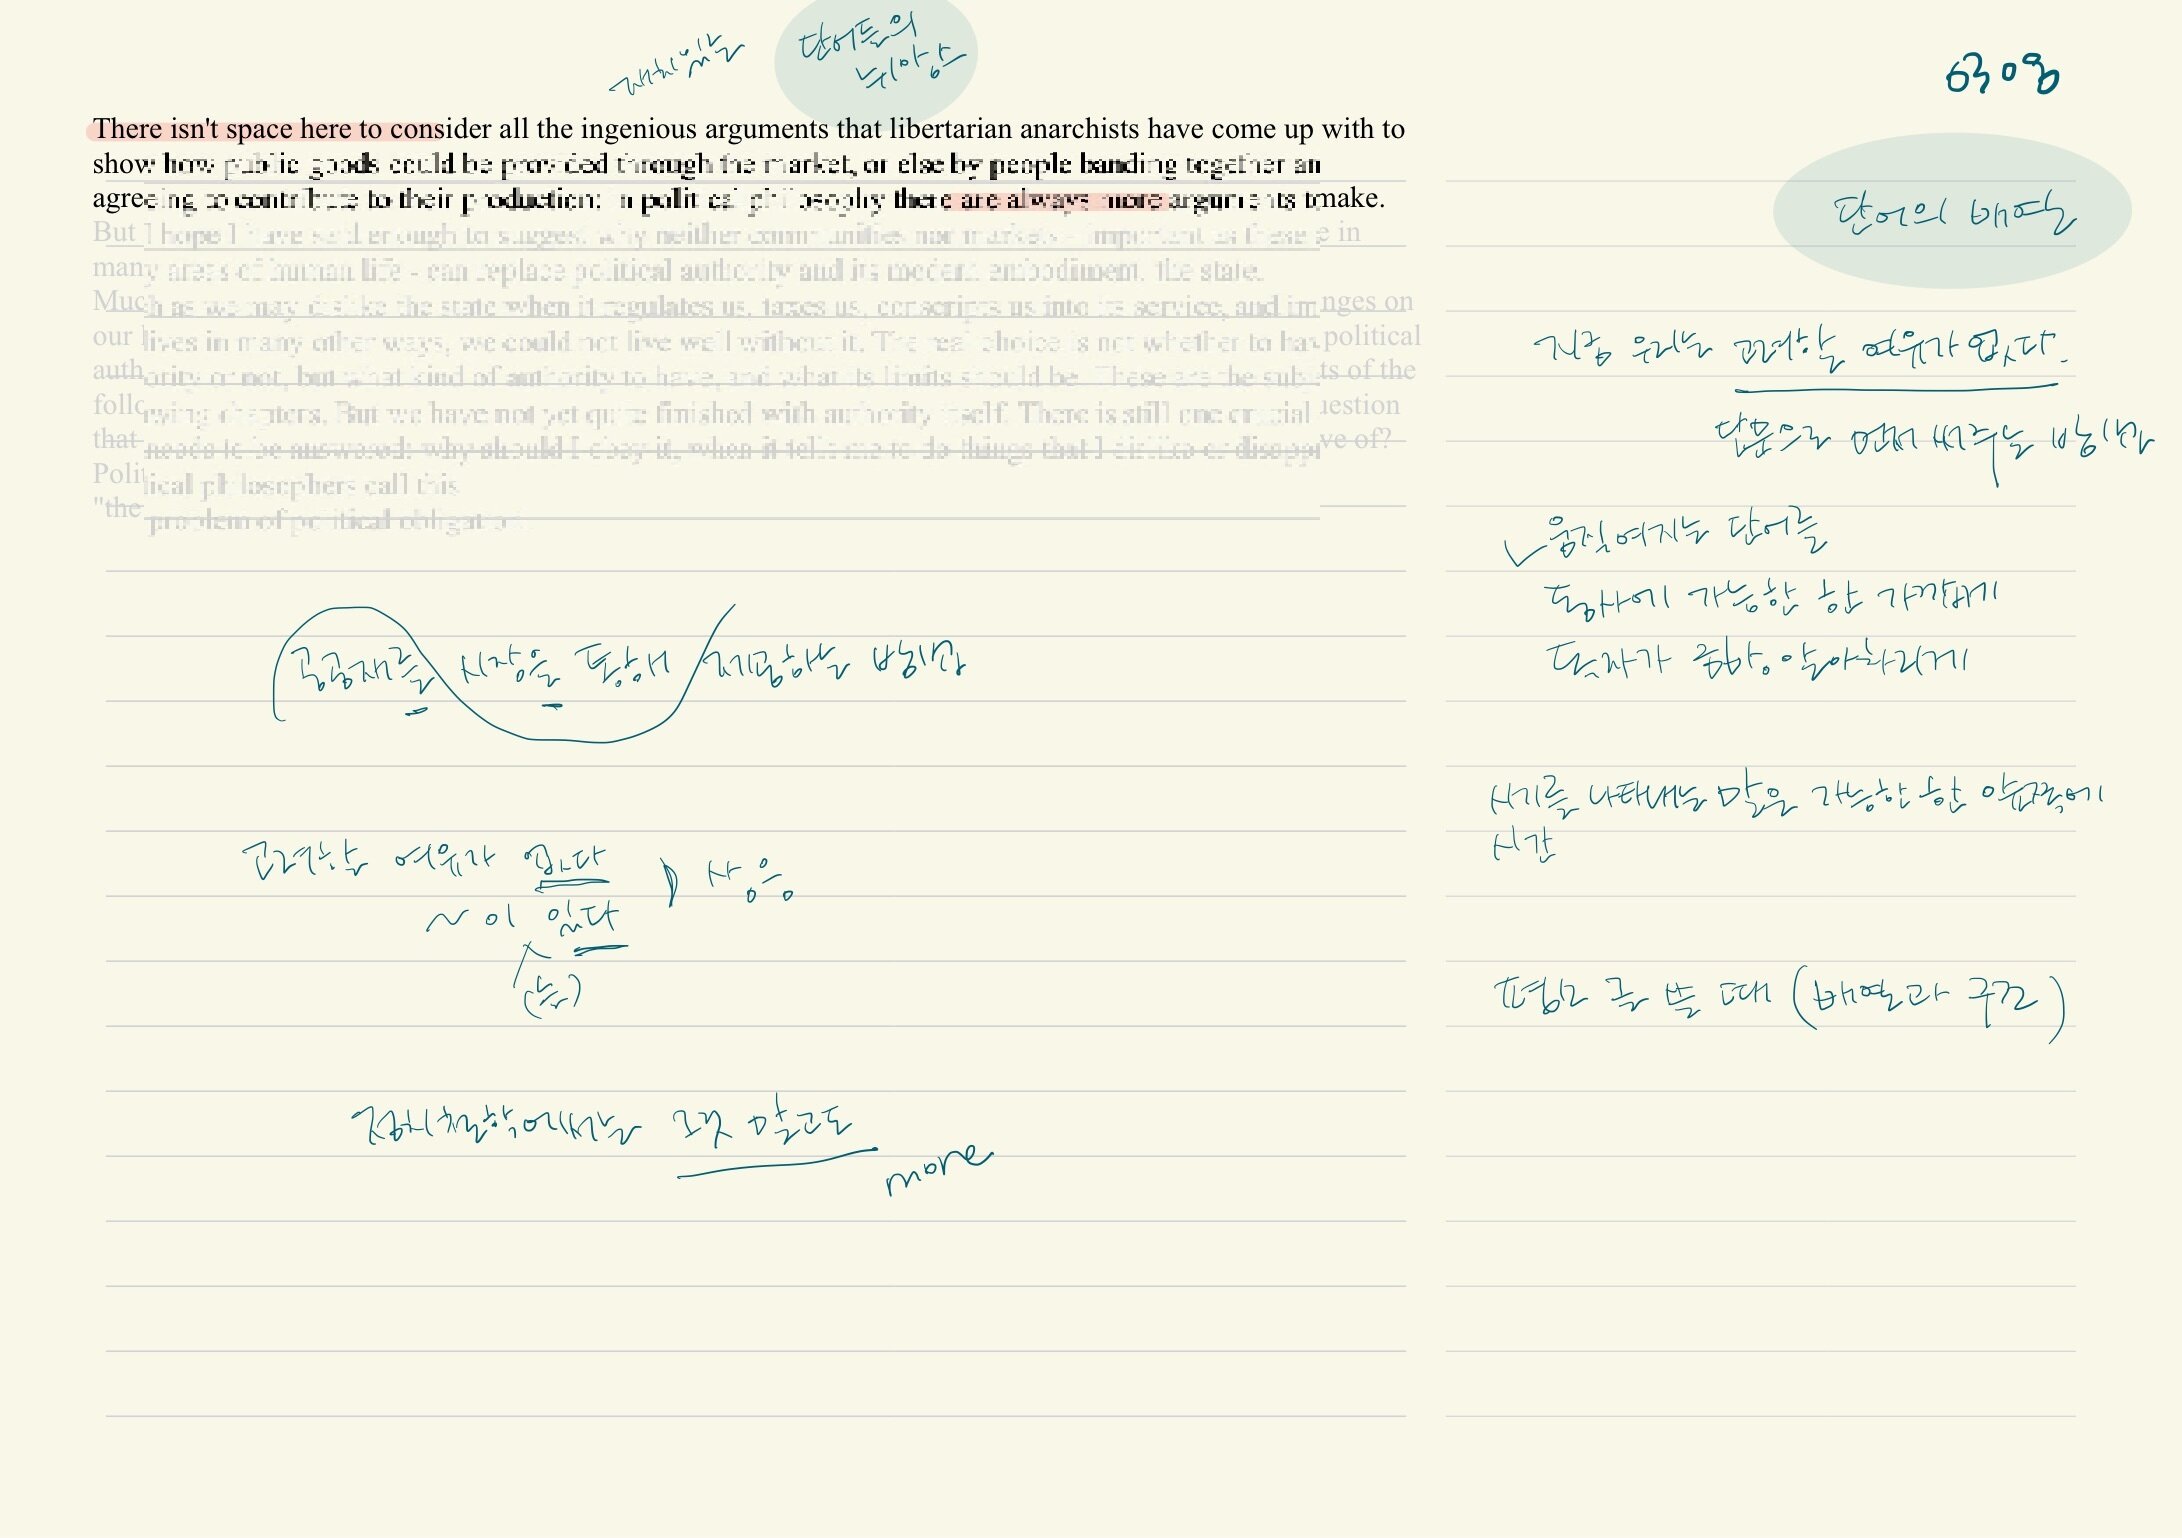 재치있는
단어들의
뉘앙스
630명
There isn't space here to consider all the ingenious arguments that libertarian anarchists have come up with to
show how public goods could be provided through the market, or else by people banding together an
agreeing to contribute to their production: in political philosophy there are always more arguments to make.
But I hope I have said enough to suggest why neither communities nor markets - important as these in
many areas of human life - can replace political authority and its modern embodiment, the state.
Much as we may dislike the state when it regulates us, taxes us, conscripts us into its service, and im nges on
our lives in many other ways, we could not live well without it. The real choice is not whether to hav political
authority or not, but what kind of authority to have, and what its limits should be. These are the sub ts of the
following chapters. But we have not yet quite finished with authority itself. There is still one crucial uestion
that needs to be answered: why should I obey it, when it tells me to do things that I dislike or disapp ve of?
Political philosophers call this
"the problem of political obligation
단어의 배열
지금 우리는 고려할 여유가 없다.
단문으로 먼저 써주는 방식
움직여지는 단어를
동사에 가능한 한 가깝게
독자가 알아차리게
공공재를 시장을 통해서 제공하는 방식
시기를 나타내는 말은 가능한 한 앞쪽에
시간
고려할 여유가 없다
~이 있다
(는)
사용
평소 글 쓸 때 (배열과 구조)
정치철학에서는 그것 말고도
more